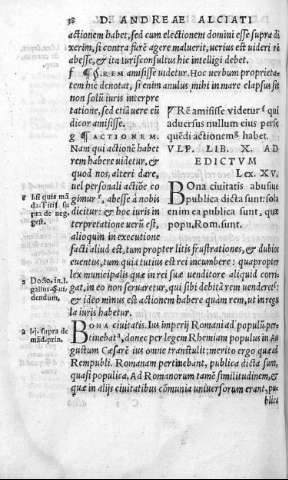 38 D. ANDREAE ALCIATI
actionem habet, sed cum electionem domini esse supra di
xerim, si contra furē agere maluerit, uerius est uideri rē
abesse, & ita iurisconsultus hic intelligi debet.
f ¶ S. REM amisisse videtur. Hoc uerbum proprieta
tem hic denotat, si enim anulus mihi in mare elapsus sit
non solū iuris interpre
tatione, sed etiā uere eū
dicor amisisse.
g ¶ ACTIONEM.
Nam qui actionē habet
rem habere uidetur, &
quod nos, alteri dare,
uel personali actiōe co
gimur, abesse à nobis
dicitur: & hoc iuris in
terpretatione uerū est,
alioquin in executione
facti aliud est, tum propter litis frustrationes, & dubios
euentus, tum quia tutius est rei incumbere: quapropter
lex municipalis quæ in rei suæ uenditore aliquid corri
gat, in eo non seruaretur, qui sibi debitā rem venderet:
& ideo minus est actionem habere quàm rem, ut in regu
la iuris habetur.
¶Rē amisisse videtur qui
aduersus nullum eius perse
quēdi actionem habet.
VLP. LIB. X. AD
EDICTVM
Lex XV.
BOna ciuitatis abusus
publica dicta sunt: sola
enim ea publica sunt, quæ
popu. Rom. sunt.
BONA ciuitatis. Ius imperij Romani ad populū per
tinebat, donec per legem Rhemiam populus in Au
gustum Cæsarē ius omne transtulit: merito ergo quæ ad
Rempubli. Romanam pertinebant, publica dicta sunt,
quasi populica. Ad Romanorum tamē similitudinem, &
quæ in alijs ciuitatibus cōmunia uniuersorum erant, pu
blica